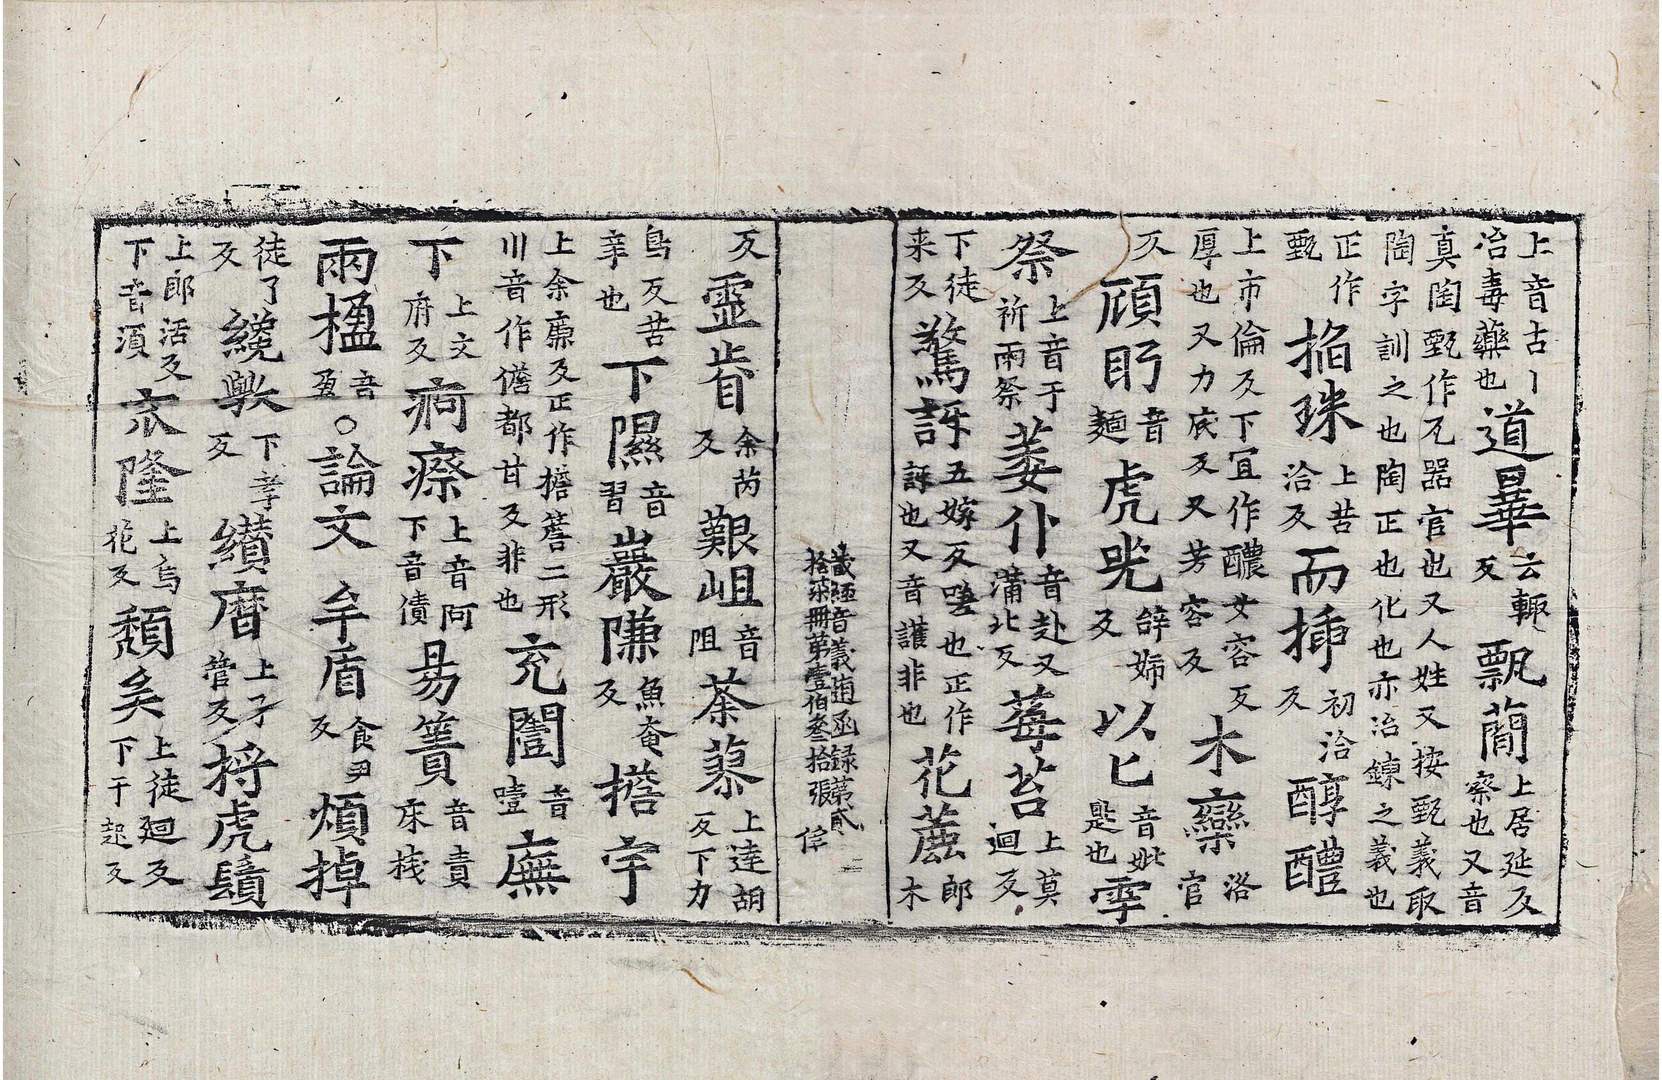 上音古丨冶毒藥也道畢云輙反飄蕳上居延反察也又音
真陶甄作瓦器官也又人姓又按甄義取陶字訓之也陶正也化也亦冶鍊之義也
正作甄掐珠上苦洽反而挿初洽反醇醲
上市倫反下冝作醲女容反厚也又力底反又芳容反木欒洛官
反頎眄音麺虎兕辞姊反以匕音妣匙也雩
祭上音于祈雨祭萎仆音赴又蒲北反莓苔上莫迴反
下徒来反驚訝五嫁反嘆也正作訝也又音護非也花蔍郎木
藏經音義随函録第貳拾柒冊第壹伯叁拾張
反靈眘余芮反艱岨音阻荼蓼上達胡反下力
鳥反苦辛也下隰音習巖嵰魚奄反擔宇
上余廉反正作擔簷二形川音作儋都甘反非也充闛音噎廡
下上文府反痾瘵上音阿下音債昜簀音責床棧
兩楹音盈〇論文牟盾食尹反煩掉
徒了反纔歟下孝反纘磨上子管反捋虎鬚
上郎活反下音湏窊隆上烏花反頽矣上徒廻反下干起反